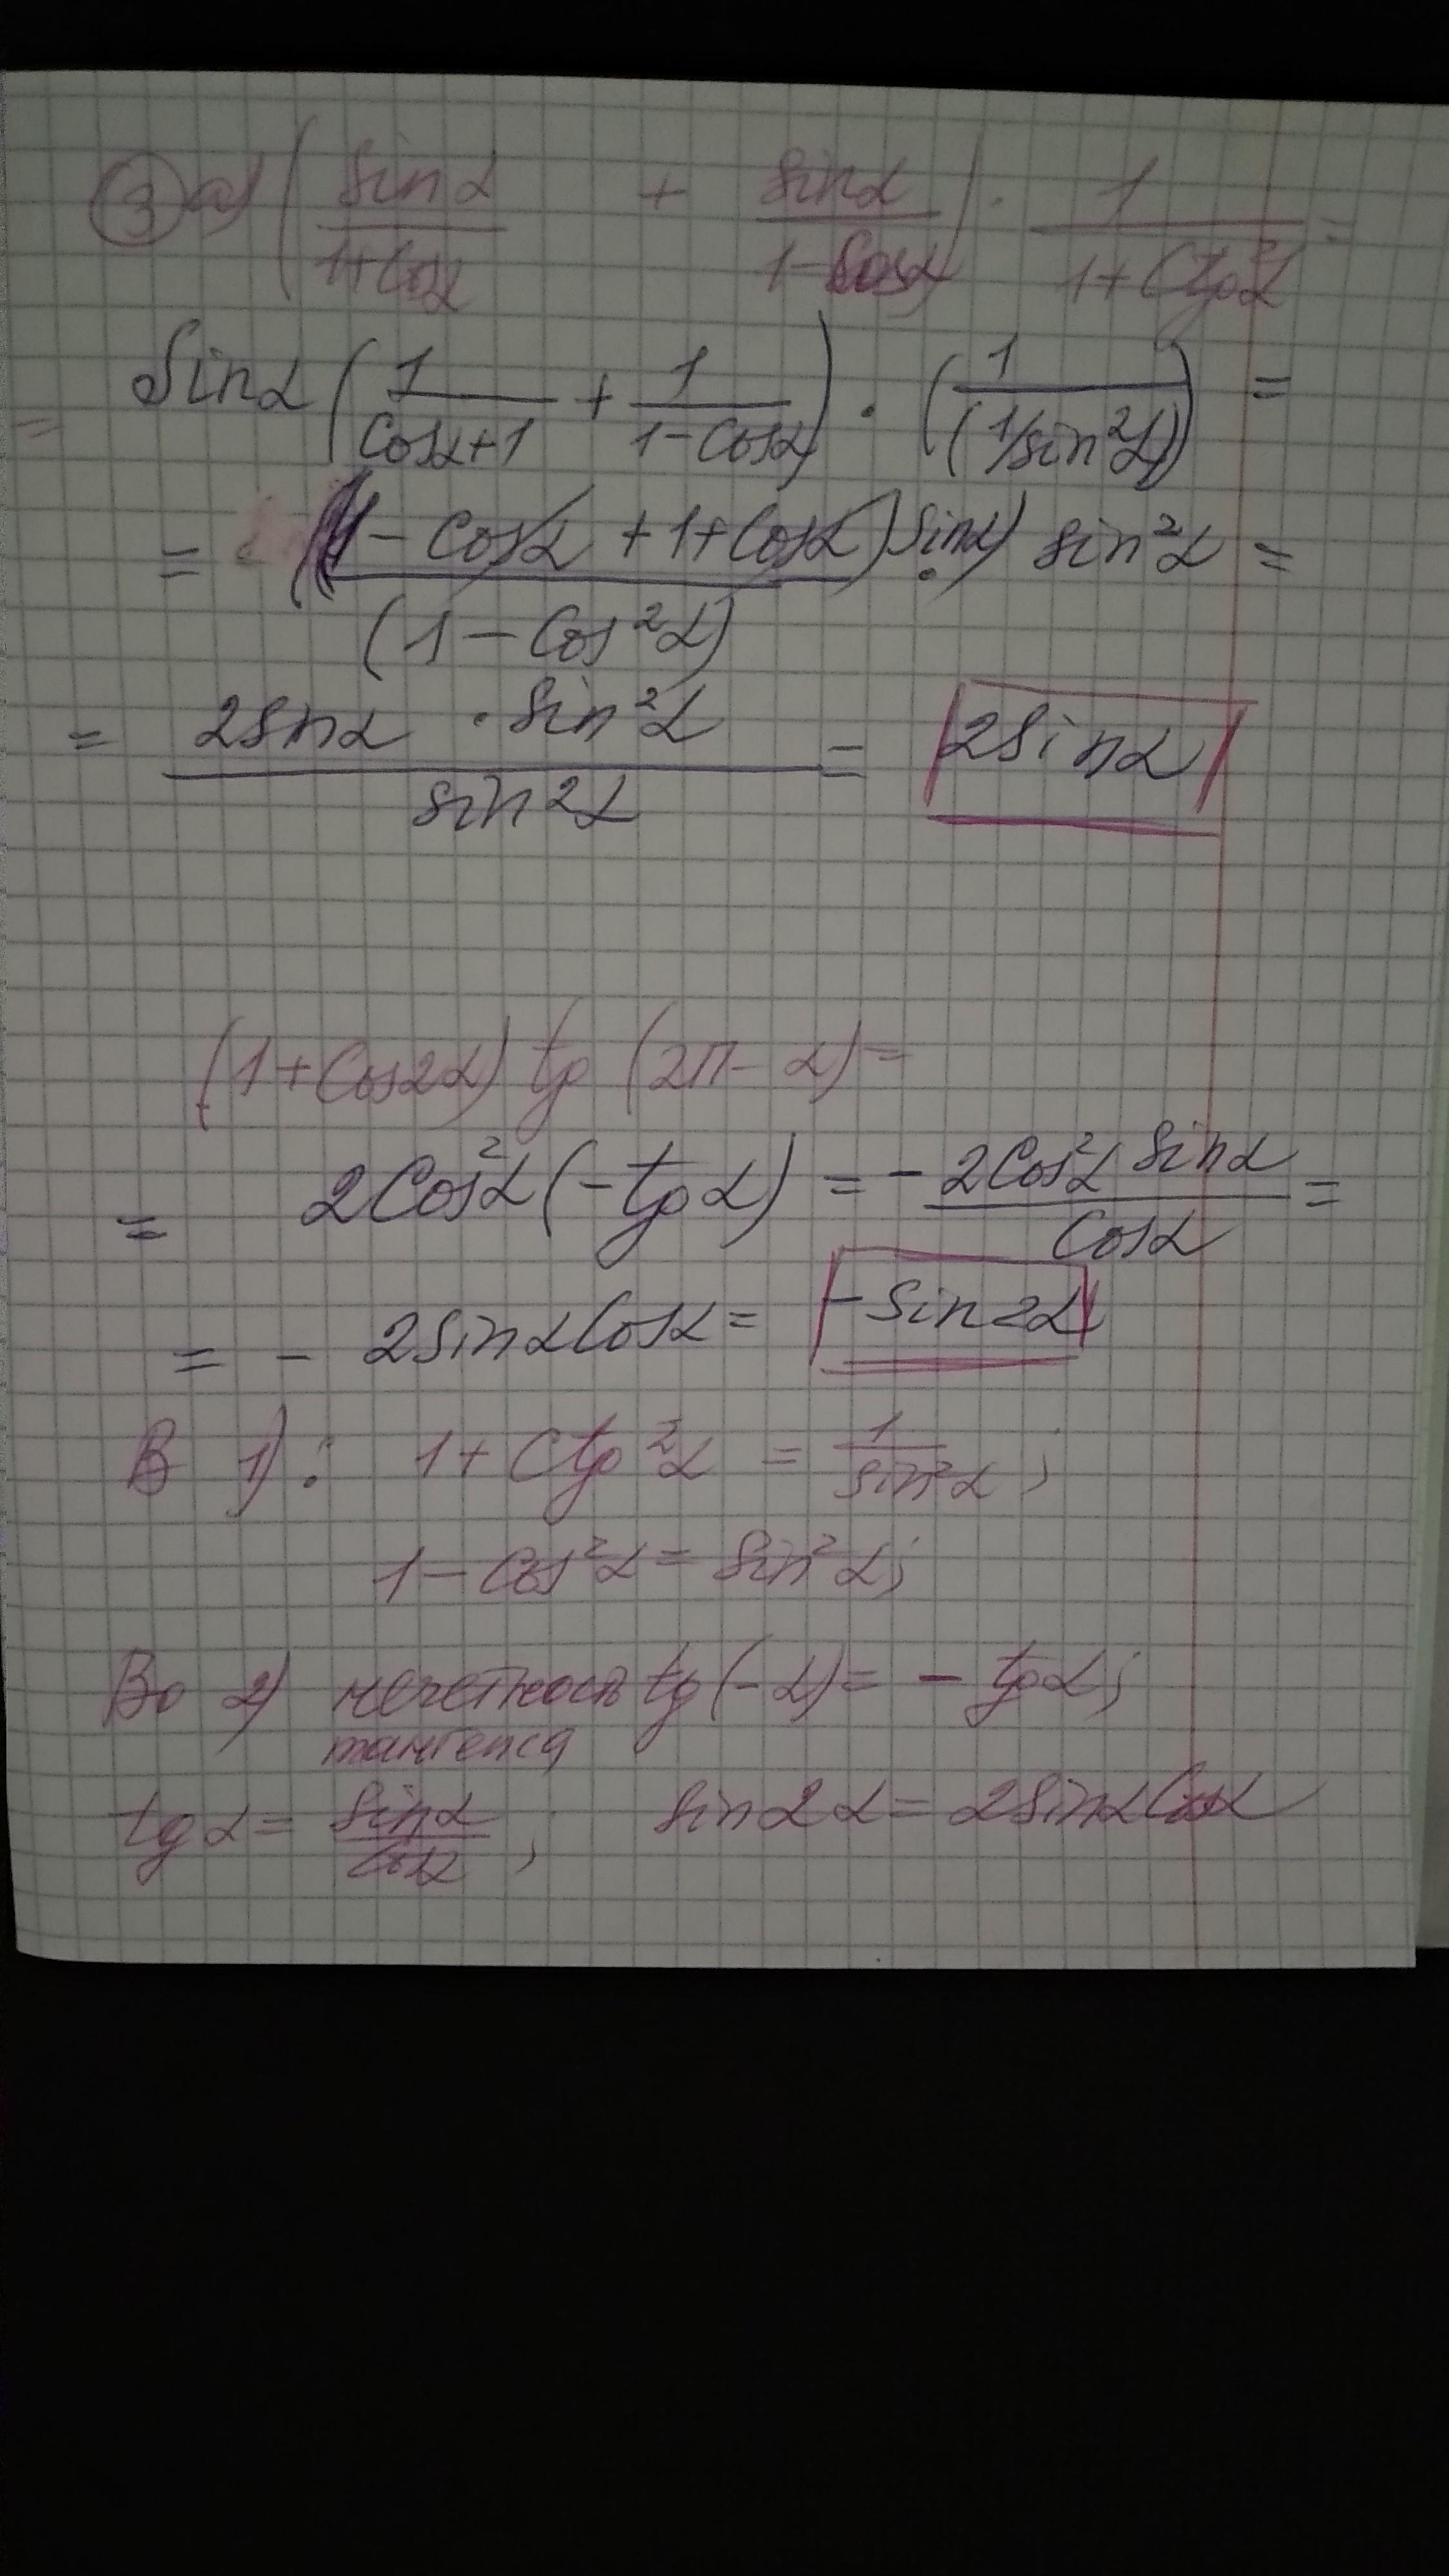 ③ а) (sinα/(1+cosα) + sinα/(1-cosα)) · 1/(1+ctg²α) =
= sinα (1/(cosα+1) + 1/(1-cosα)) · (1/(1/sin²α)) =
= ((1-cosα+1+cosα) sinα)/(1-cos²α) · sin²α =
= (2sinα · sin²α)/sin²α = 2sinα
(1+cos2α) tg (2π-α) =
= 2cos²α (-tgα) = - (2cos²α sinα)/cosα =
= - 2sinαcosα = -sin2α
В 1): 1+ctg²α = 1/sin²α;
1-cos²α = sin²α;
Во 2) нечетность tg(-α) = -tgα;
тангенса
tgα = sinα/cosα; sin2α = 2sinαcosα